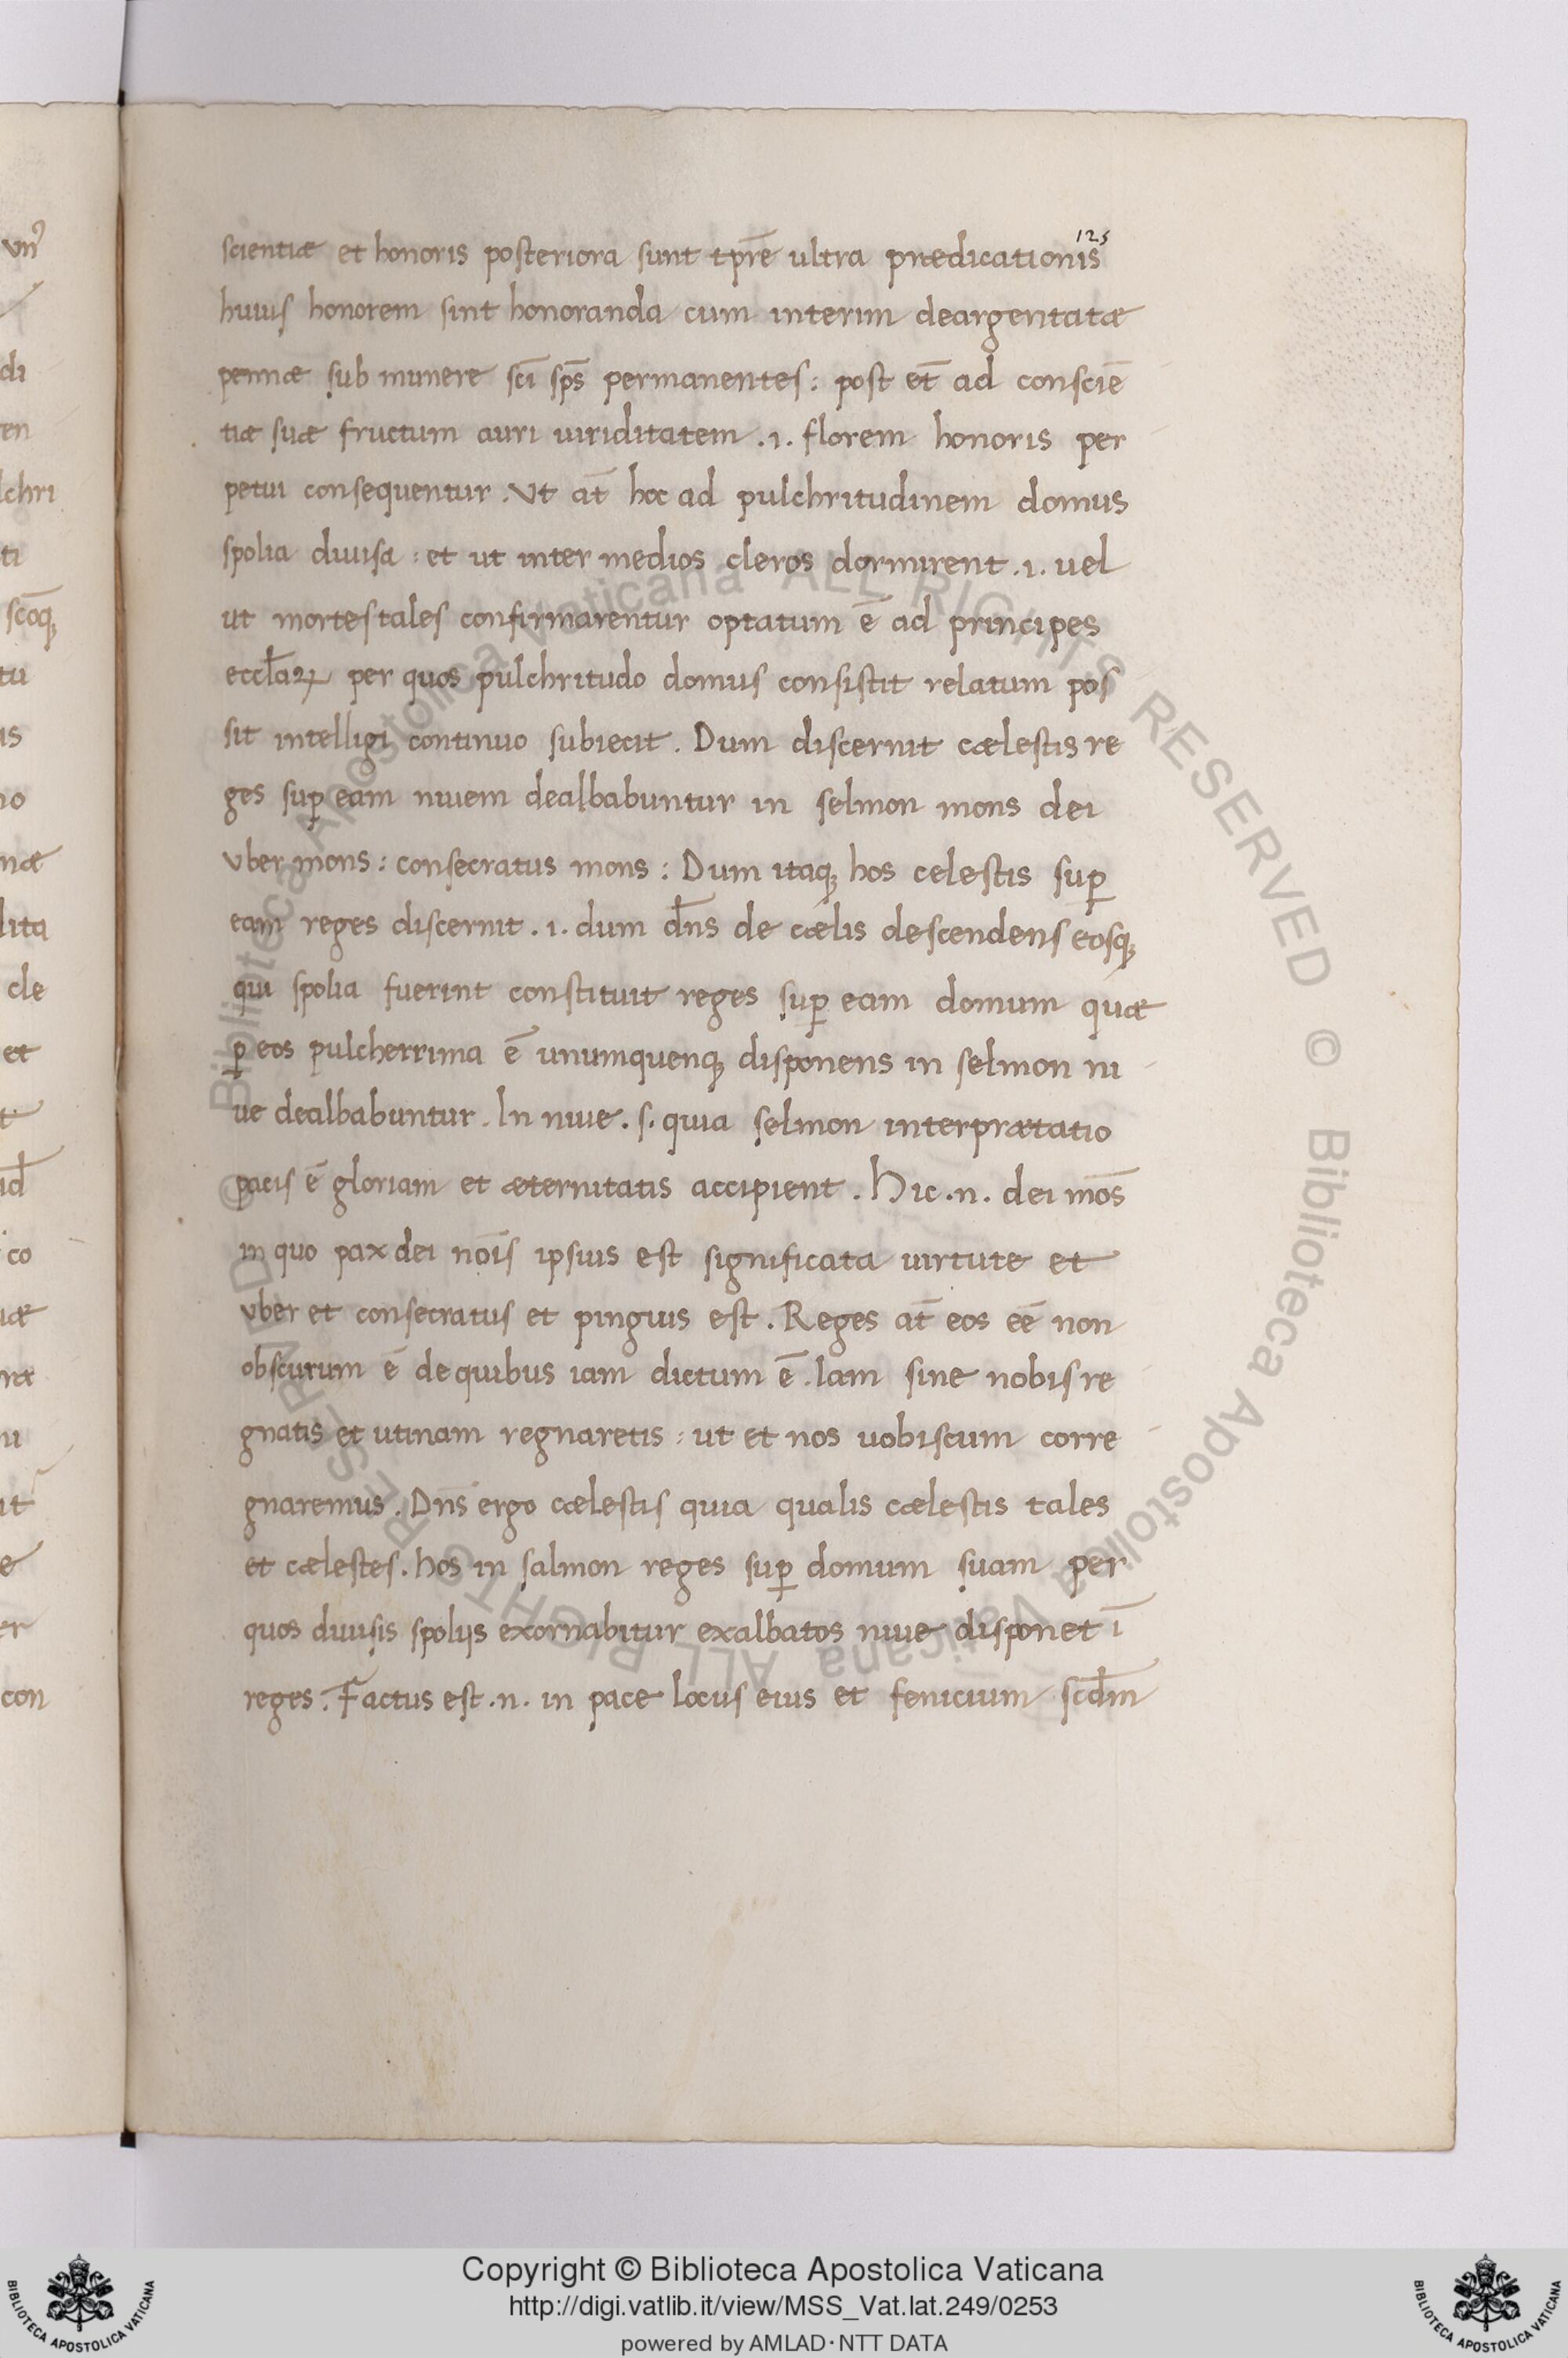 125
scientiæ et honoris posteriora sunt tp̄re ultra prædicationis
huius honorem sint honoranda cum interim deargentatæ
pennæ sub munere sc̄i sp̄s permanentes : post et̄ ad consciē
tiæ suæ fructum auri uiriditatem .i. florem honoris per
petui consequentur . Vt at̄ hoc ad pulchritudinem domus
spolia diuisa : et ut inter medios cleros dormirent .i. uel
ut mortes tales confirmarentur optatum ē ad principes
eccl̄aꝝ per quos pulchritudo domus consistit relatum pos
sit intelligi continuo subiecit . Dum discernit cælestis re
ges suꝑ eam niuem dealbabuntur in selmon mons dei
vber mons : consecratus mons : Dum itaq; hos celestis suꝑ
eam reges discernit . i. dum dn̄s de cælis descendens eosq;
qui spolia fuerint constituit reges suꝑ eam domum quæ
ꝑ eos pulcherrima ē unumquenq; disponens in selmon ni
ue dealbabuntur . In niue . s. quia selmon interprætatio
pacis ē gloriam et æternitatis accipient . Hic .n. dei mōs
in quo pax dei nōis ipsius est significata uirtute et
vber et consecratus et pinguis est . Reges at̄ eos eē non
obscurum ē de quibus iam dictum ē . Iam sine nobis re
gnatis et utinam regnaretis : ut et nos uobiscum corre
gnaremus . Dn̄s ergo cælestis quia qualis cælestis tales
et cælestes . hos in salmon reges suꝑ domum suam per
quos diuisis spolijs exornabitur exalbatos niue disponet ī
reges . Factus est .n. in pace locus eius et fenicium scd̄m
vn̄
di
en
lchri
ti
scōq;
tu
is
no
næ
lita
cle
et
co
ni
it
er
con
© Biblioteca Apostolica Vaticana ALL RIGHTS RESERVED
© Biblioteca Apostolica Vaticana ALL RIGHTS RESERVED
Copyright © Biblioteca Apostolica Vaticana
http://digi.vatlib.it/view/MSS_Vat.lat.249/0253
powered by AMLAD·NTT DATA
BIBLIOTECA APOSTOLICA VATICANA
BIBLIOTECA APOSTOLICA VATICANA